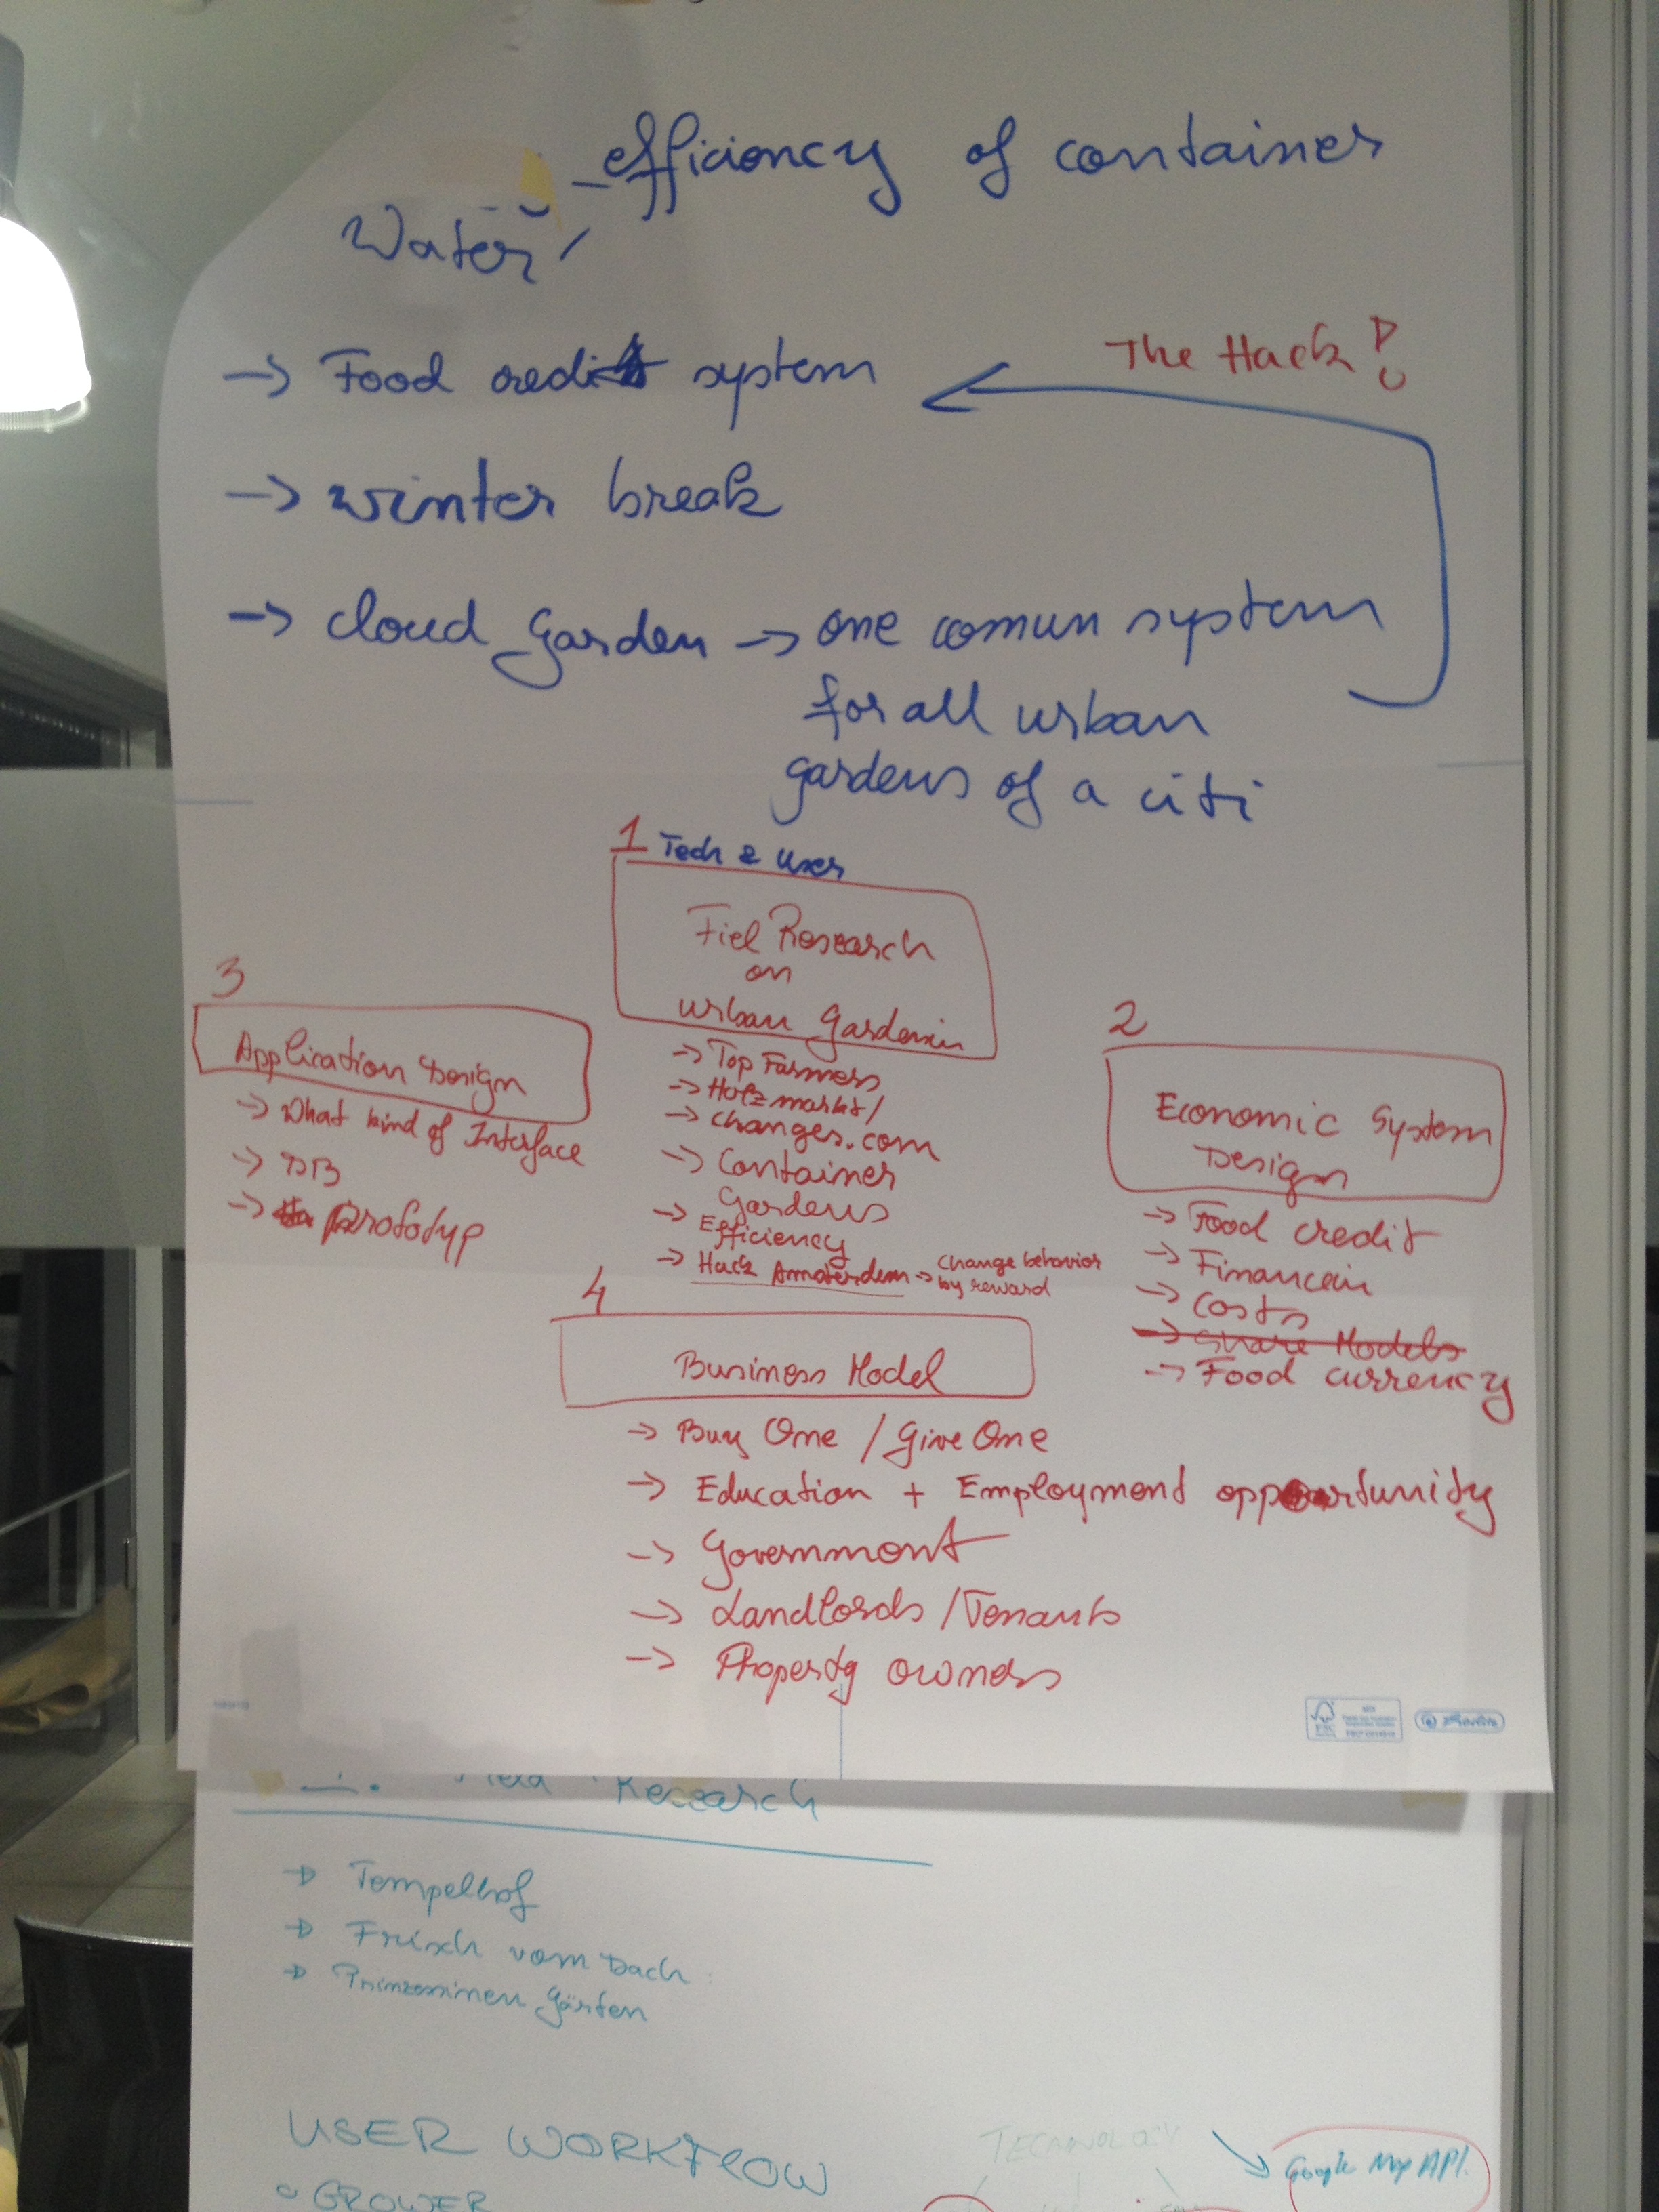 efficiency of container
Water
→ Food credit system
The Hack!
→ winter break
→ cloud garden → one comun system
for all urban
gardens of a citi
1 Tech & User
Fiel Research
on
urban Gardenin
→ Top Farmers
→ Holzmarkt/
→ changes.com
→ Container
Gardens
→ Efficiency
→ Hack Amsterdam → Change behavior
by reward
3
Application Design
→ What kind of Interface
→ DB
→ prototyp
2
Economic System
Design
→ Food credit
→ Financin
→ Costs
→ Share Models
→ Food currency
4
Business Model
→ Buy One / Give One
→ Education + Employment opportunity
→ Government
→ Landlords / Tenants
→ Property owners
FSC
1. Field Research
→ Tempelhof
→ Frisch vom Dach
→ Prinzessinnen Gärten
USER WORKFLOW
GROWER
TECHNOLOGY
Google Map API.